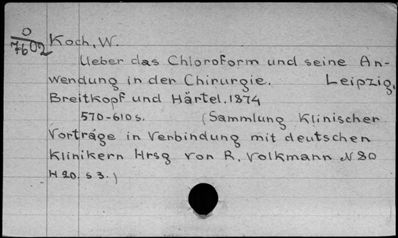 O
7602
Koch, W.
Ueber das Chloroform und seine An-
wendung in der Chirurgie. Leipzig,
Breitkopf und Härtel. 1874
570-610 s. (Sammlung Klinischer
Vorträge in Verbindung mit deutschen
Klinikern Hrsg von R. Volkmann N 80
H 20. S 3.)